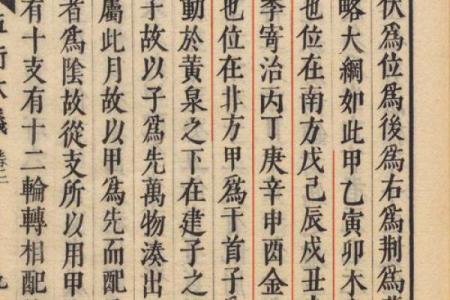 伏爲位爲後爲右爲荆爲
略大綱如此甲乙寅卯木
也位在南方戊己辰戌丑
季寄治丙丁庚辛申酉金
也位在非方甲爲干首子
動於黃泉之下在建子之
子故以子爲先萬物湊出
屬此月故以甲爲先而配
者爲陰故從支所以用甲
有十支有十二輪轉相配
五行大義 卷二 九